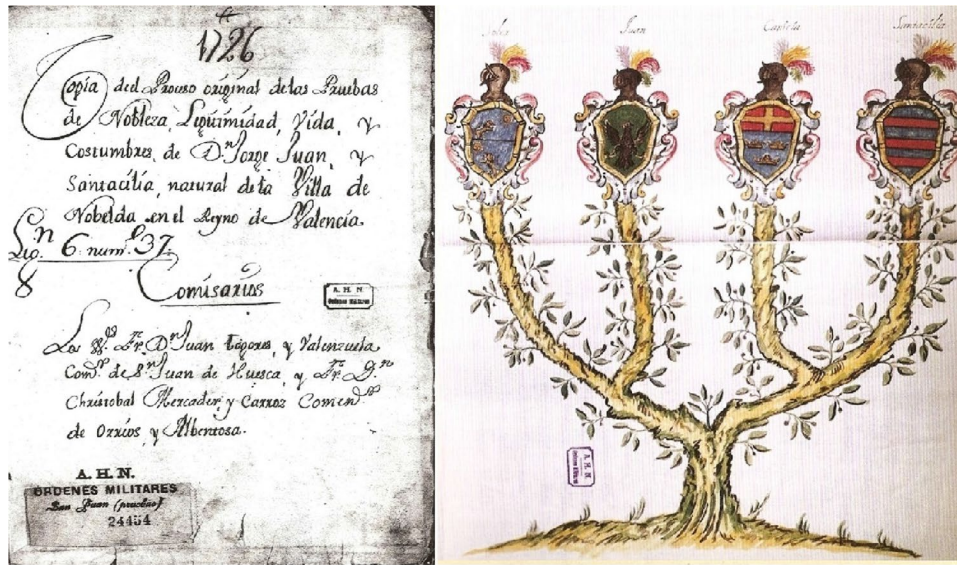 1726
Copia del Proceso original de las Pruebas
de Nobleza, Legitimidad, Vida, y
Costumbres, de D.ⁿ Jorge Juan, y
Santacilia, natural de la Villa de
Nobelda en el Reyno de Valencia.
Lig.ⁿ 6. num.º 37.
8
Comisarios
A. H. N.
Ordenes Militares
Los Fr. D.ⁿ Juan y Valenzuela
Com.ʳ de S.ⁿ Juan de Huesca, y Fr. D.ⁿ
Christobal Mercader, y Carroz Comend.ʳ
de Orrios, y Albentosa.
A. H. N.
ORDENES MILITARES
San Juan (pruebas)
24454
Juan
Canicia
Santacilia
A. H. N.